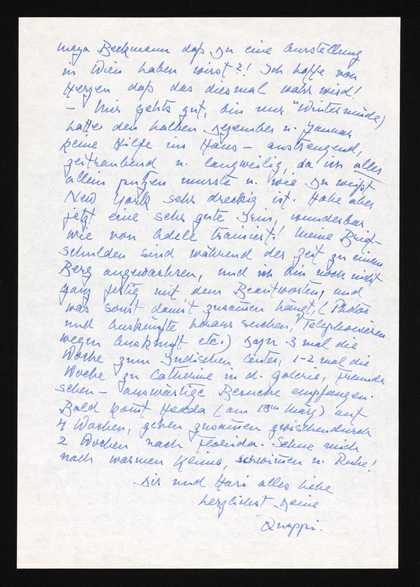 Maja Beckmann daß Du eine Ausstellung
in Wien haben wirst?! Ich hoffe von
Herzen daß das diesmal wahr wird!
– Mir geht's gut, bin nur "Wintermüde",
hatte den halben Dezember u. Januar
keine Hilfe im Haus – anstrengend,
zeitraubend u. langweilig, da ich alles
allein putzen musste u. wie Du weißt
New York sehr dreckig ist. Habe aber
jetzt eine sehr gute Frau, wunderbar
wie von Adele trainiert! Meine Brief-
schulden sind während der Zeit zu einem
Berg angewachsen, und ich bin noch nicht
ganz fertig mit dem Beantworten, und
was sonst damit zusammen hängt, (Photos
und Auskünfte heraus suchen, Telephonieren
wegen Auskunft etc.) Dazu 3 mal die
Woche zum Indischen Center, 1-2 mal die
Woche zu Catherine in d. Galerie, Freunde
sehen – auswärtige Besuche empfangen.
Bald komt Hedda (am 10th März) auf
4 Wochen, gehen zusammen zwischendurch
2 Wochen nach Florida. Sehne mich
nach warmem Klima, schwimmen u. Ruhe!
Dir und Hari alles Liebe
herzlichst Deine
Quappi.